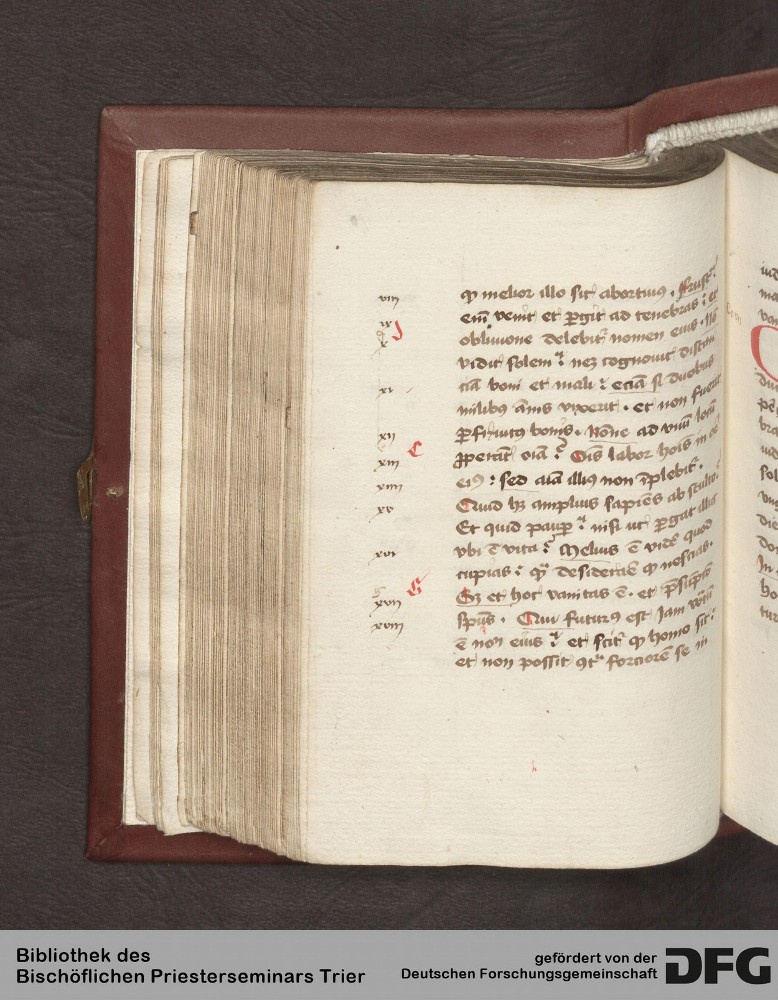 viii
ix
x
xi
xii
xiii
xiiii
xv
xvi
xvii
xviii
J
C
G
ꝙ melior illo sit abortiuus . Frustra
eni͂ venit et ꝑgit ad tenebras : et
obliuione delebit᷑ nomen eius . No͂
vidit solem : neqꝫ cognouit
cia͂ boni et mali : ecia͂ si duobus
milibus a͂nis vixerit . et non fuerit
ꝑfruitus bonis . No͂ne ad vnu͂ locu͂
ꝓperant o͂ia : O͂is labor ho͂is in ore
eiꝰ : sed a͂ia illiꝰ non i͂plebit᷑ .
Quid hꝫ amplius sapie͂s ab stulto :
Et quid paupꝑ : nisi ut ꝑgat illuc
vbi e͂ vita : Melius e͂ vide͂ quod
cupias : ꝙ desiderare ꝙ nescias .
Sꝫ et hoc vanitas e͂ . et
sp͂us . Qui futurꝰ est Iam
e͂ nom͂ eius : et scit᷑ ꝙ homo sit :
et non possit ꝯtra forciore͂ se in
Bibliothek des
Bischöflichen Priesterseminars Trier
gefördert von der
Deutschen Forschungsgemeinschaft
DFG